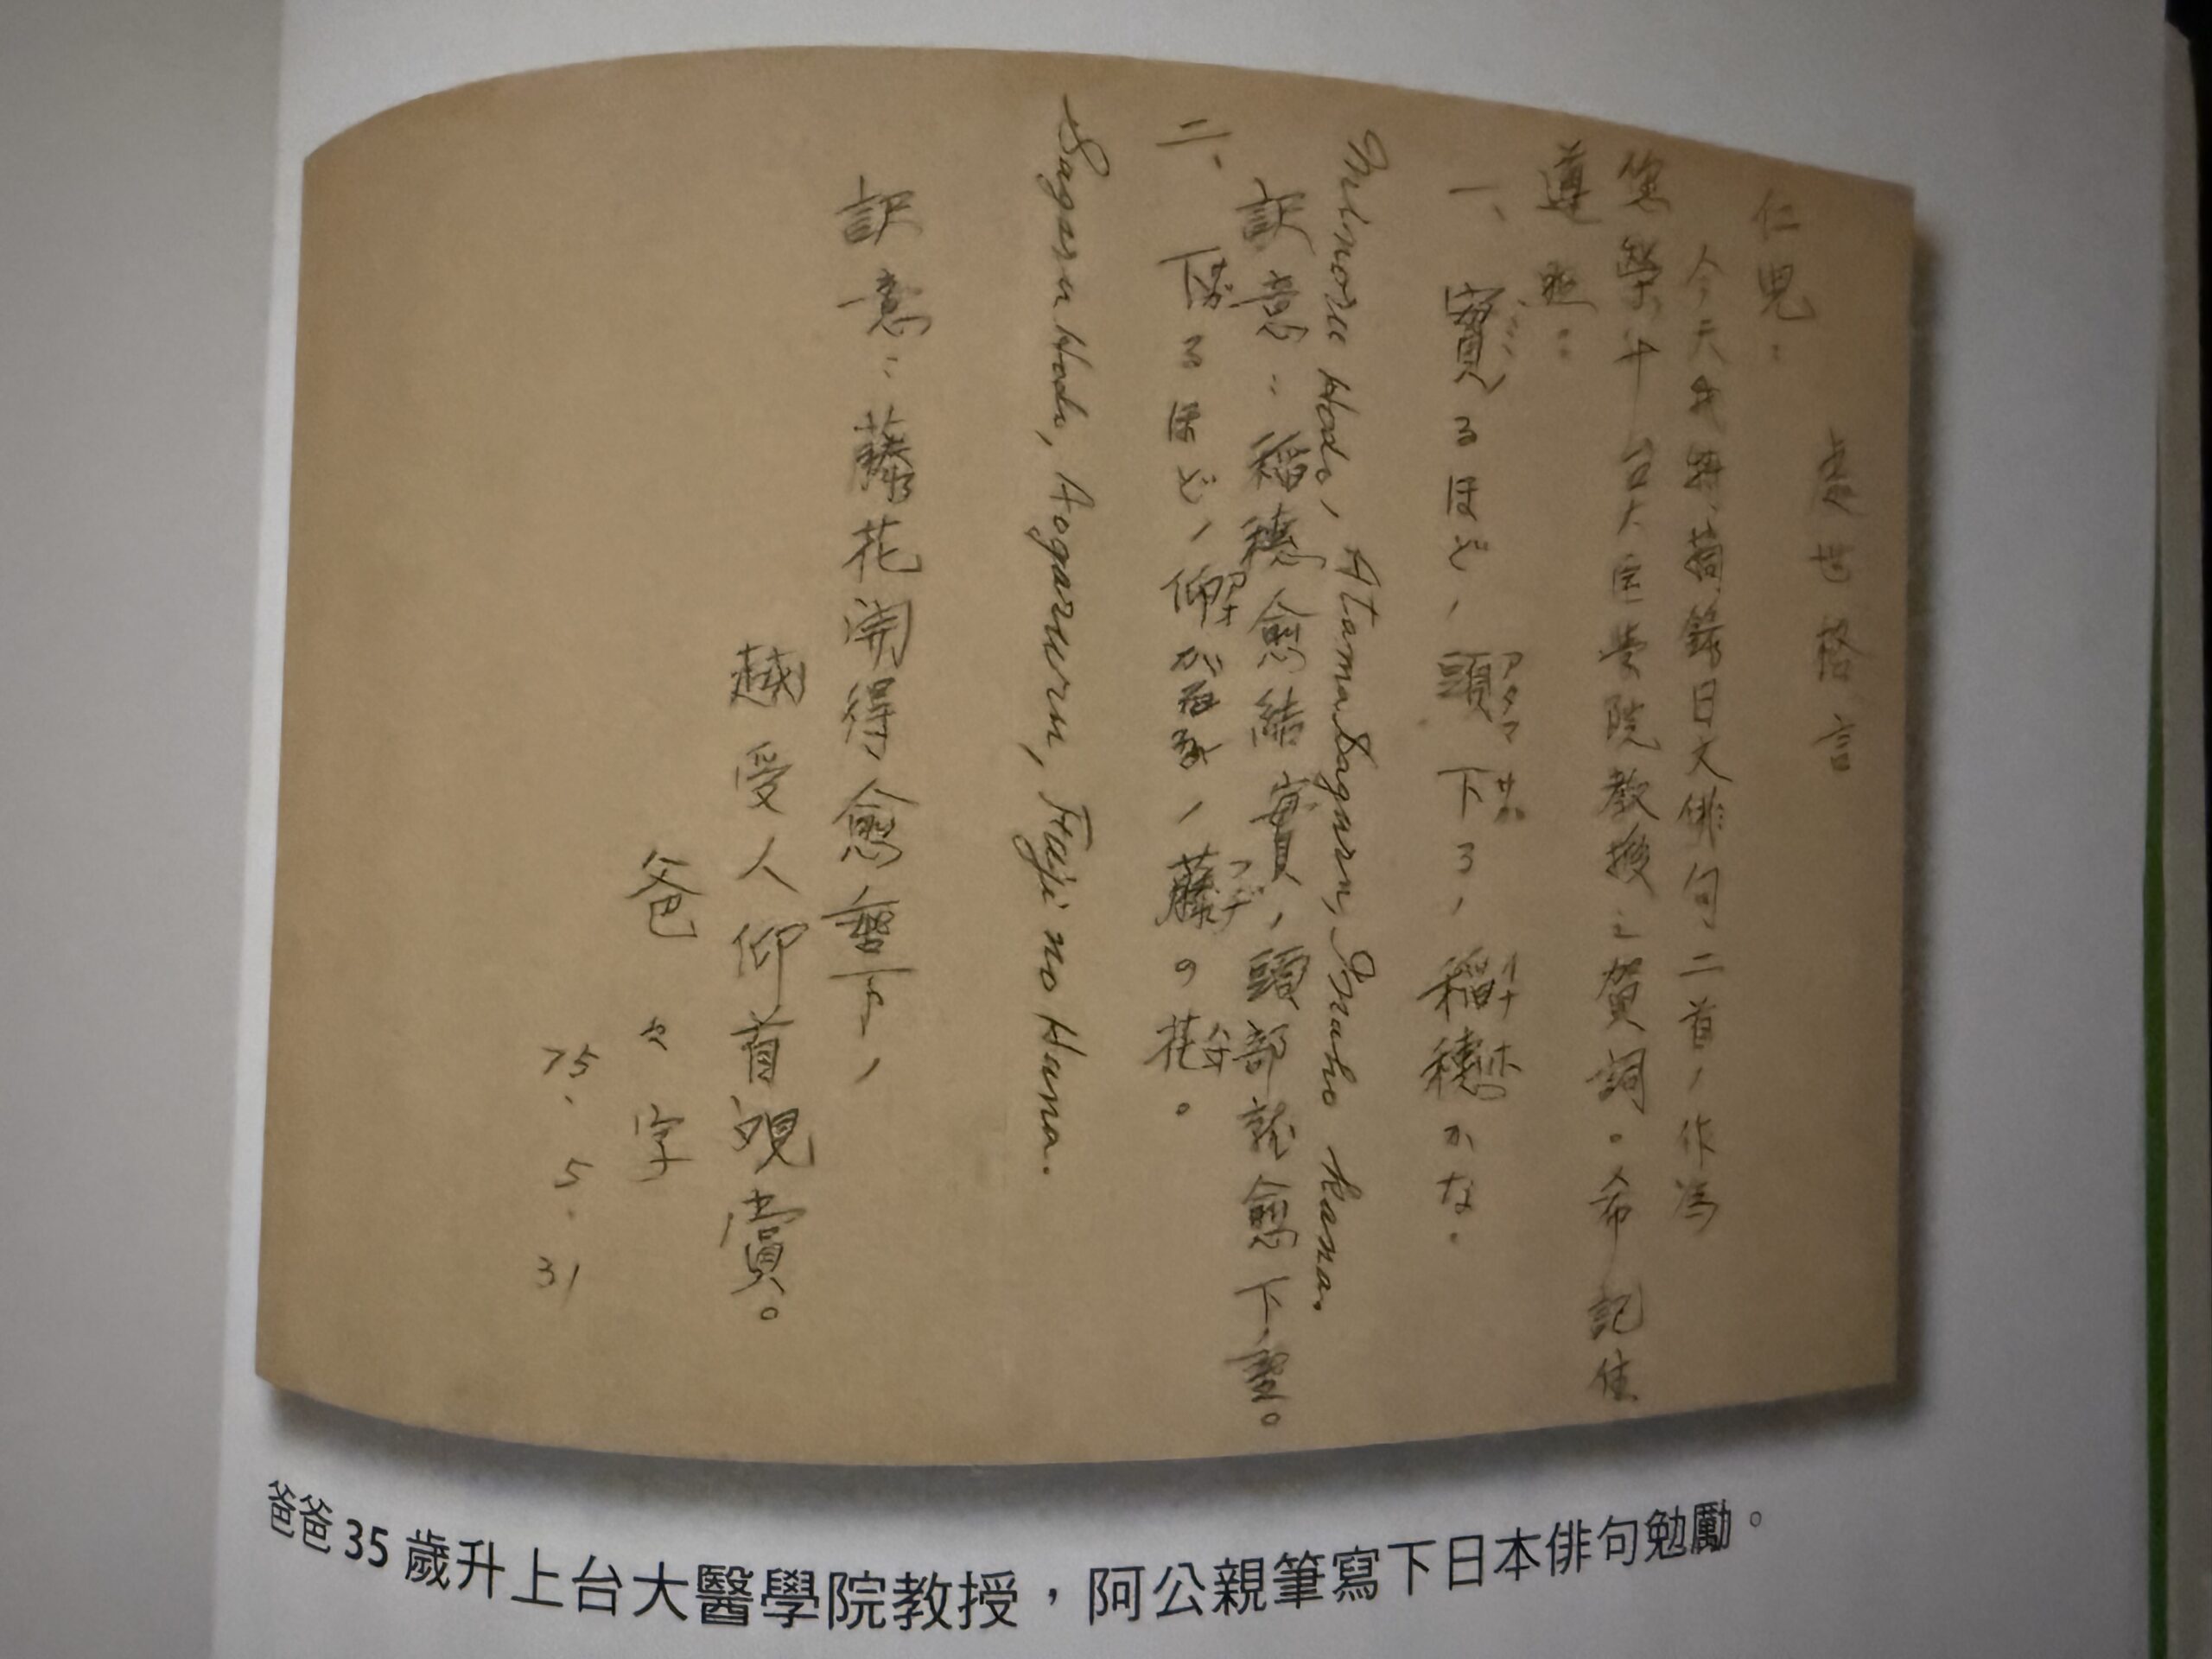 處世格言
仁兒:
今天我特摘錄日文俳句二首,作為
您榮升台大医学院教授之賀詞。希記住
遵照:
一、實ミノるほど,頭アタマ下サガる,稲穂イナホかな.
Minoru Hodo, Atama Sagaru, Inaho kana.
訳意:稲穗愈結實,頭部就愈下垂。
二、下るほど,仰がれる,藤フジの花。
Sagaru Hodo, Aogareru, Fuji no Hana.
訳意:藤花開得愈垂下,
越受人仰首觀賞。
爸々字
75.5.31
爸爸35歲升上台大醫學院教授,阿公親筆寫下日本俳句勉勵。